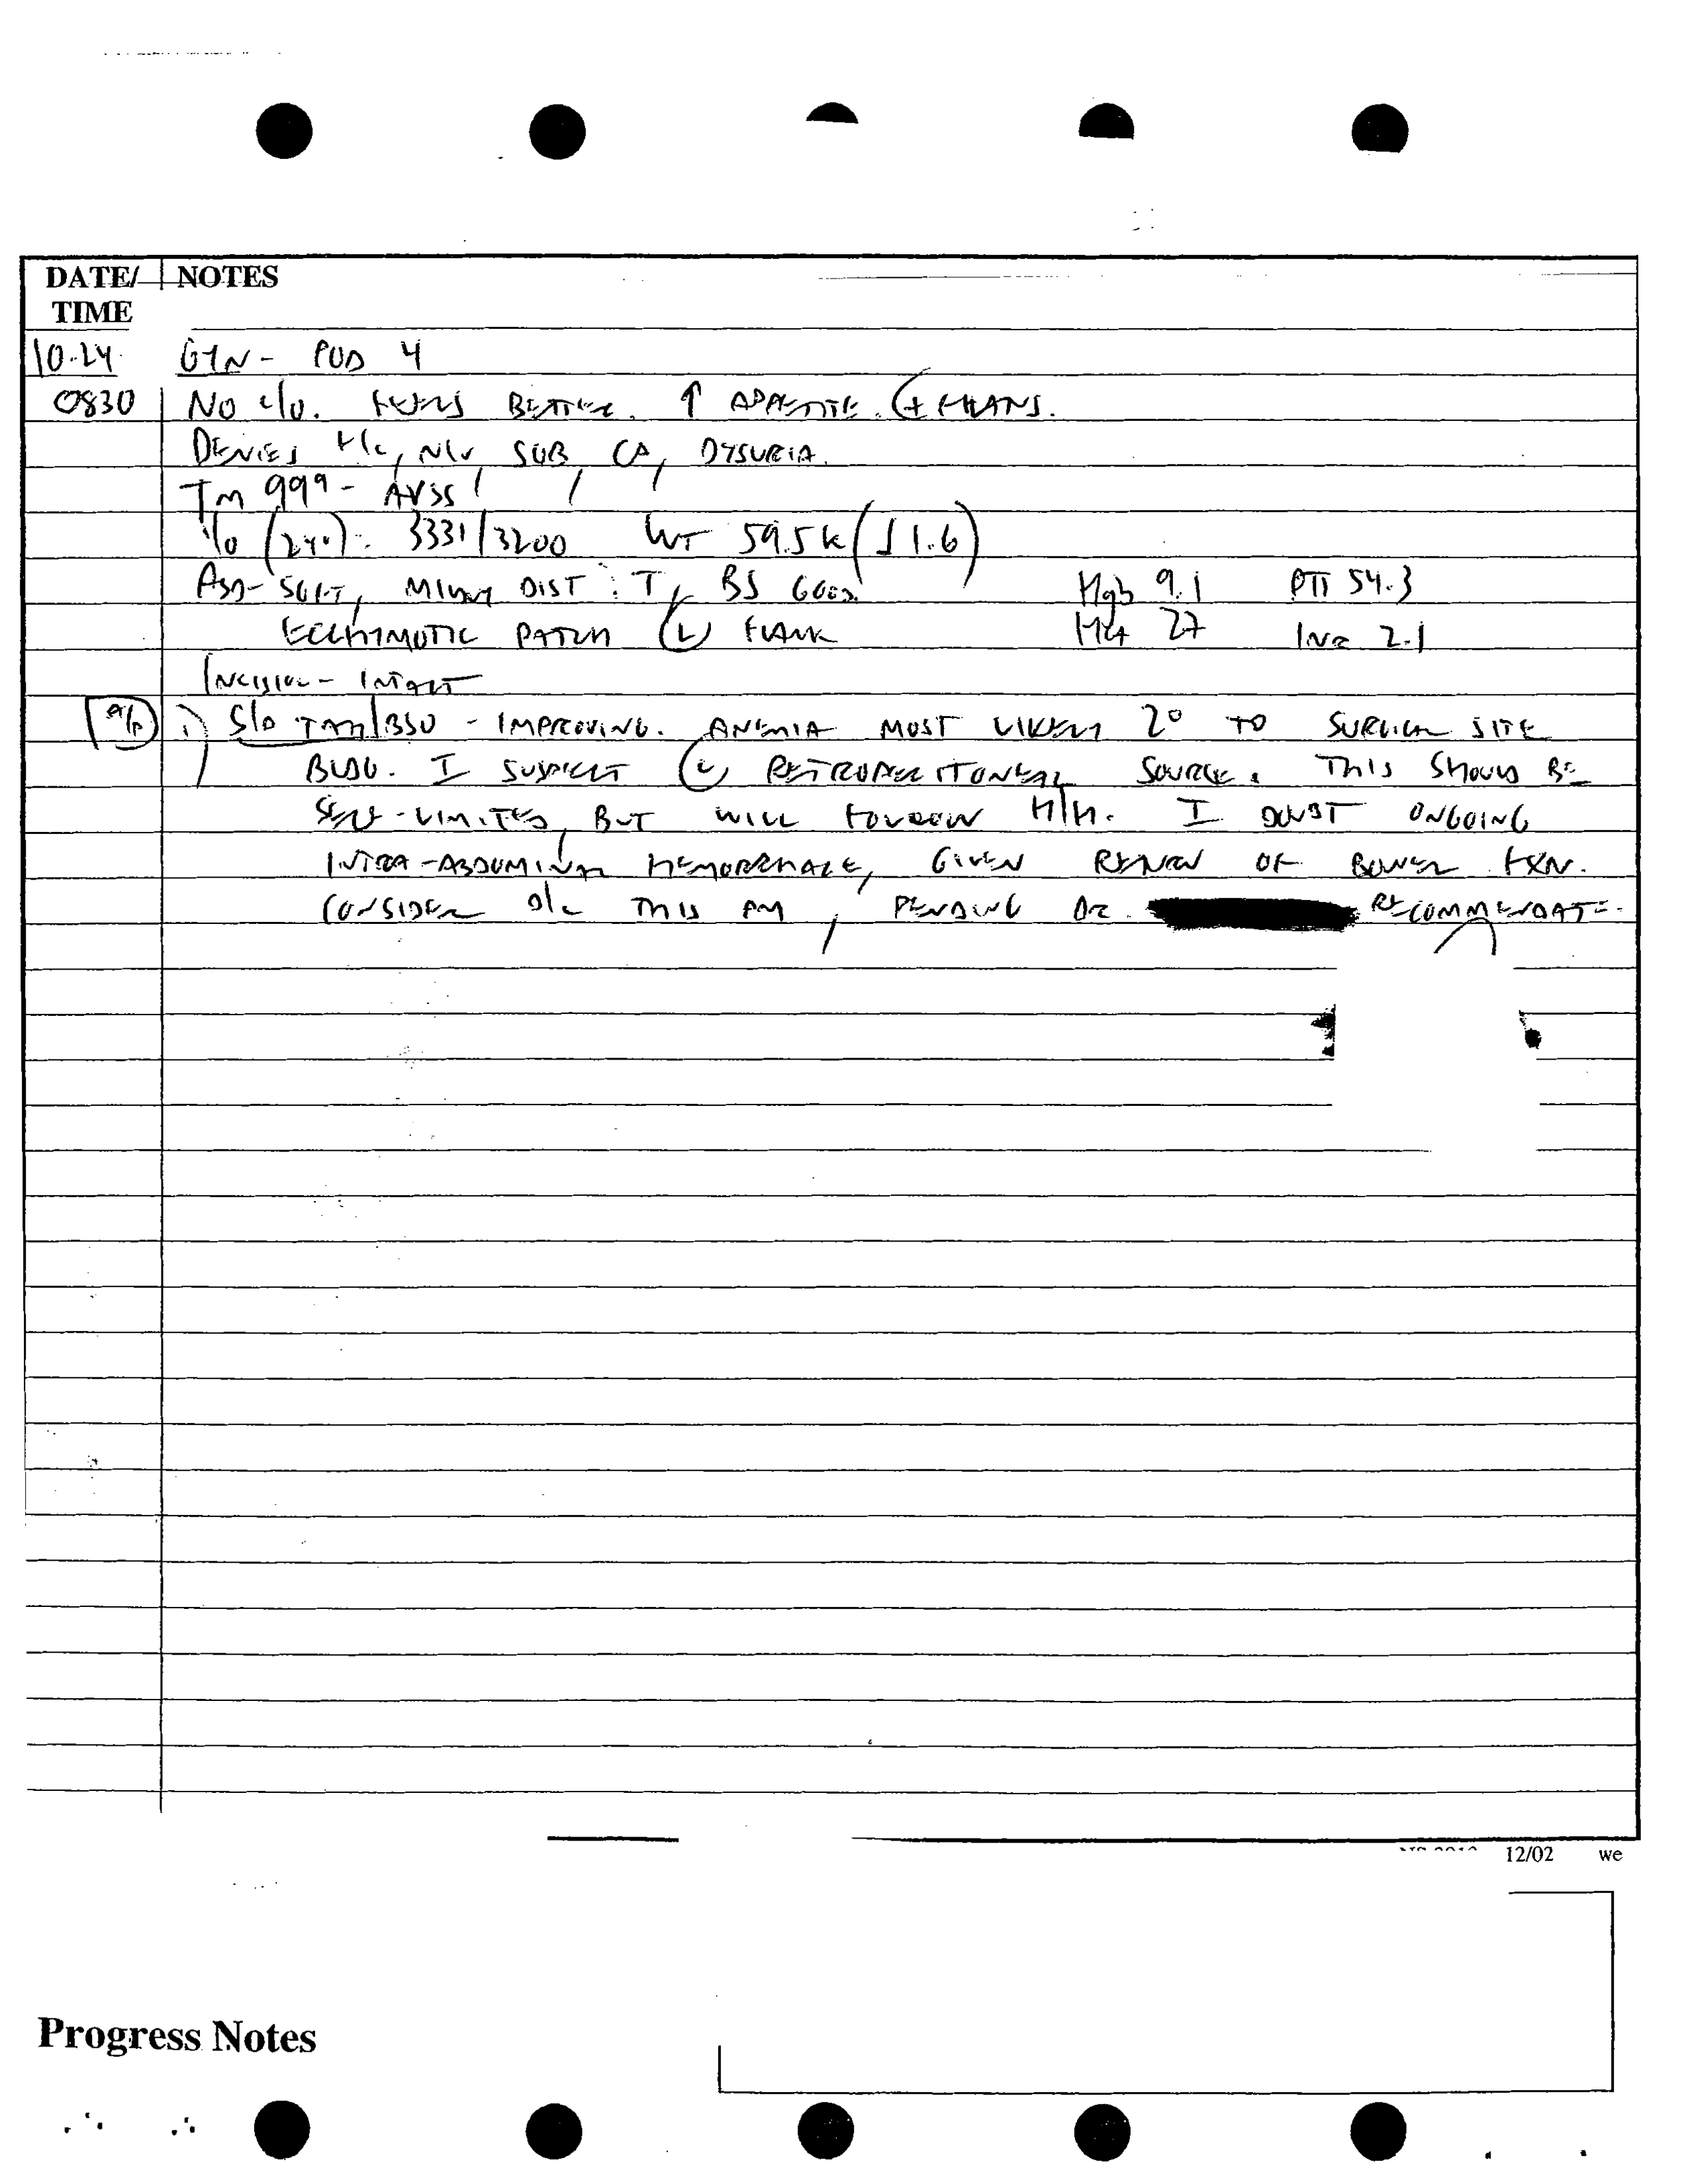 DATE/ NOTES
TIME
10-24 GYN - POD 4
0830 NO c/o. FEELS BETTER. ↑ APPETITE. (+) FLATUS.
DENIES F/C, N/V, SOB, CP, DYSURIA.
Tm 99⁹ - AVSS
I/O (24°): 3331/3200 WT 59.5 K (↓1.6)
ABD - SOFT, DIST BS GOOD Hgb 9.1 PTT 54.3
ECCHYMOTIC PATCH (L) FLANK Hct 27 INR 2.1
INCISION - INTACT
A/P 1) S/P TAH/BSO - IMPROVING. ANEMIA MOST LIKELY 2° TO SURGICAL SITE
BLDG. I SUSPECT (L) RETROPERITONEAL SOURCE. THIS SHOULD BE
SELF-LIMITED, BUT WILL FOLLOW H/H. I DOUBT ONGOING
INTRA-ABDOMINAL HEMORRHAGE, GIVEN RETURN OF BOWEL FXN.
CONSIDER D/C THIS PM, PENDING DR. RECOMMENDATI
12/02 we
Progress Notes